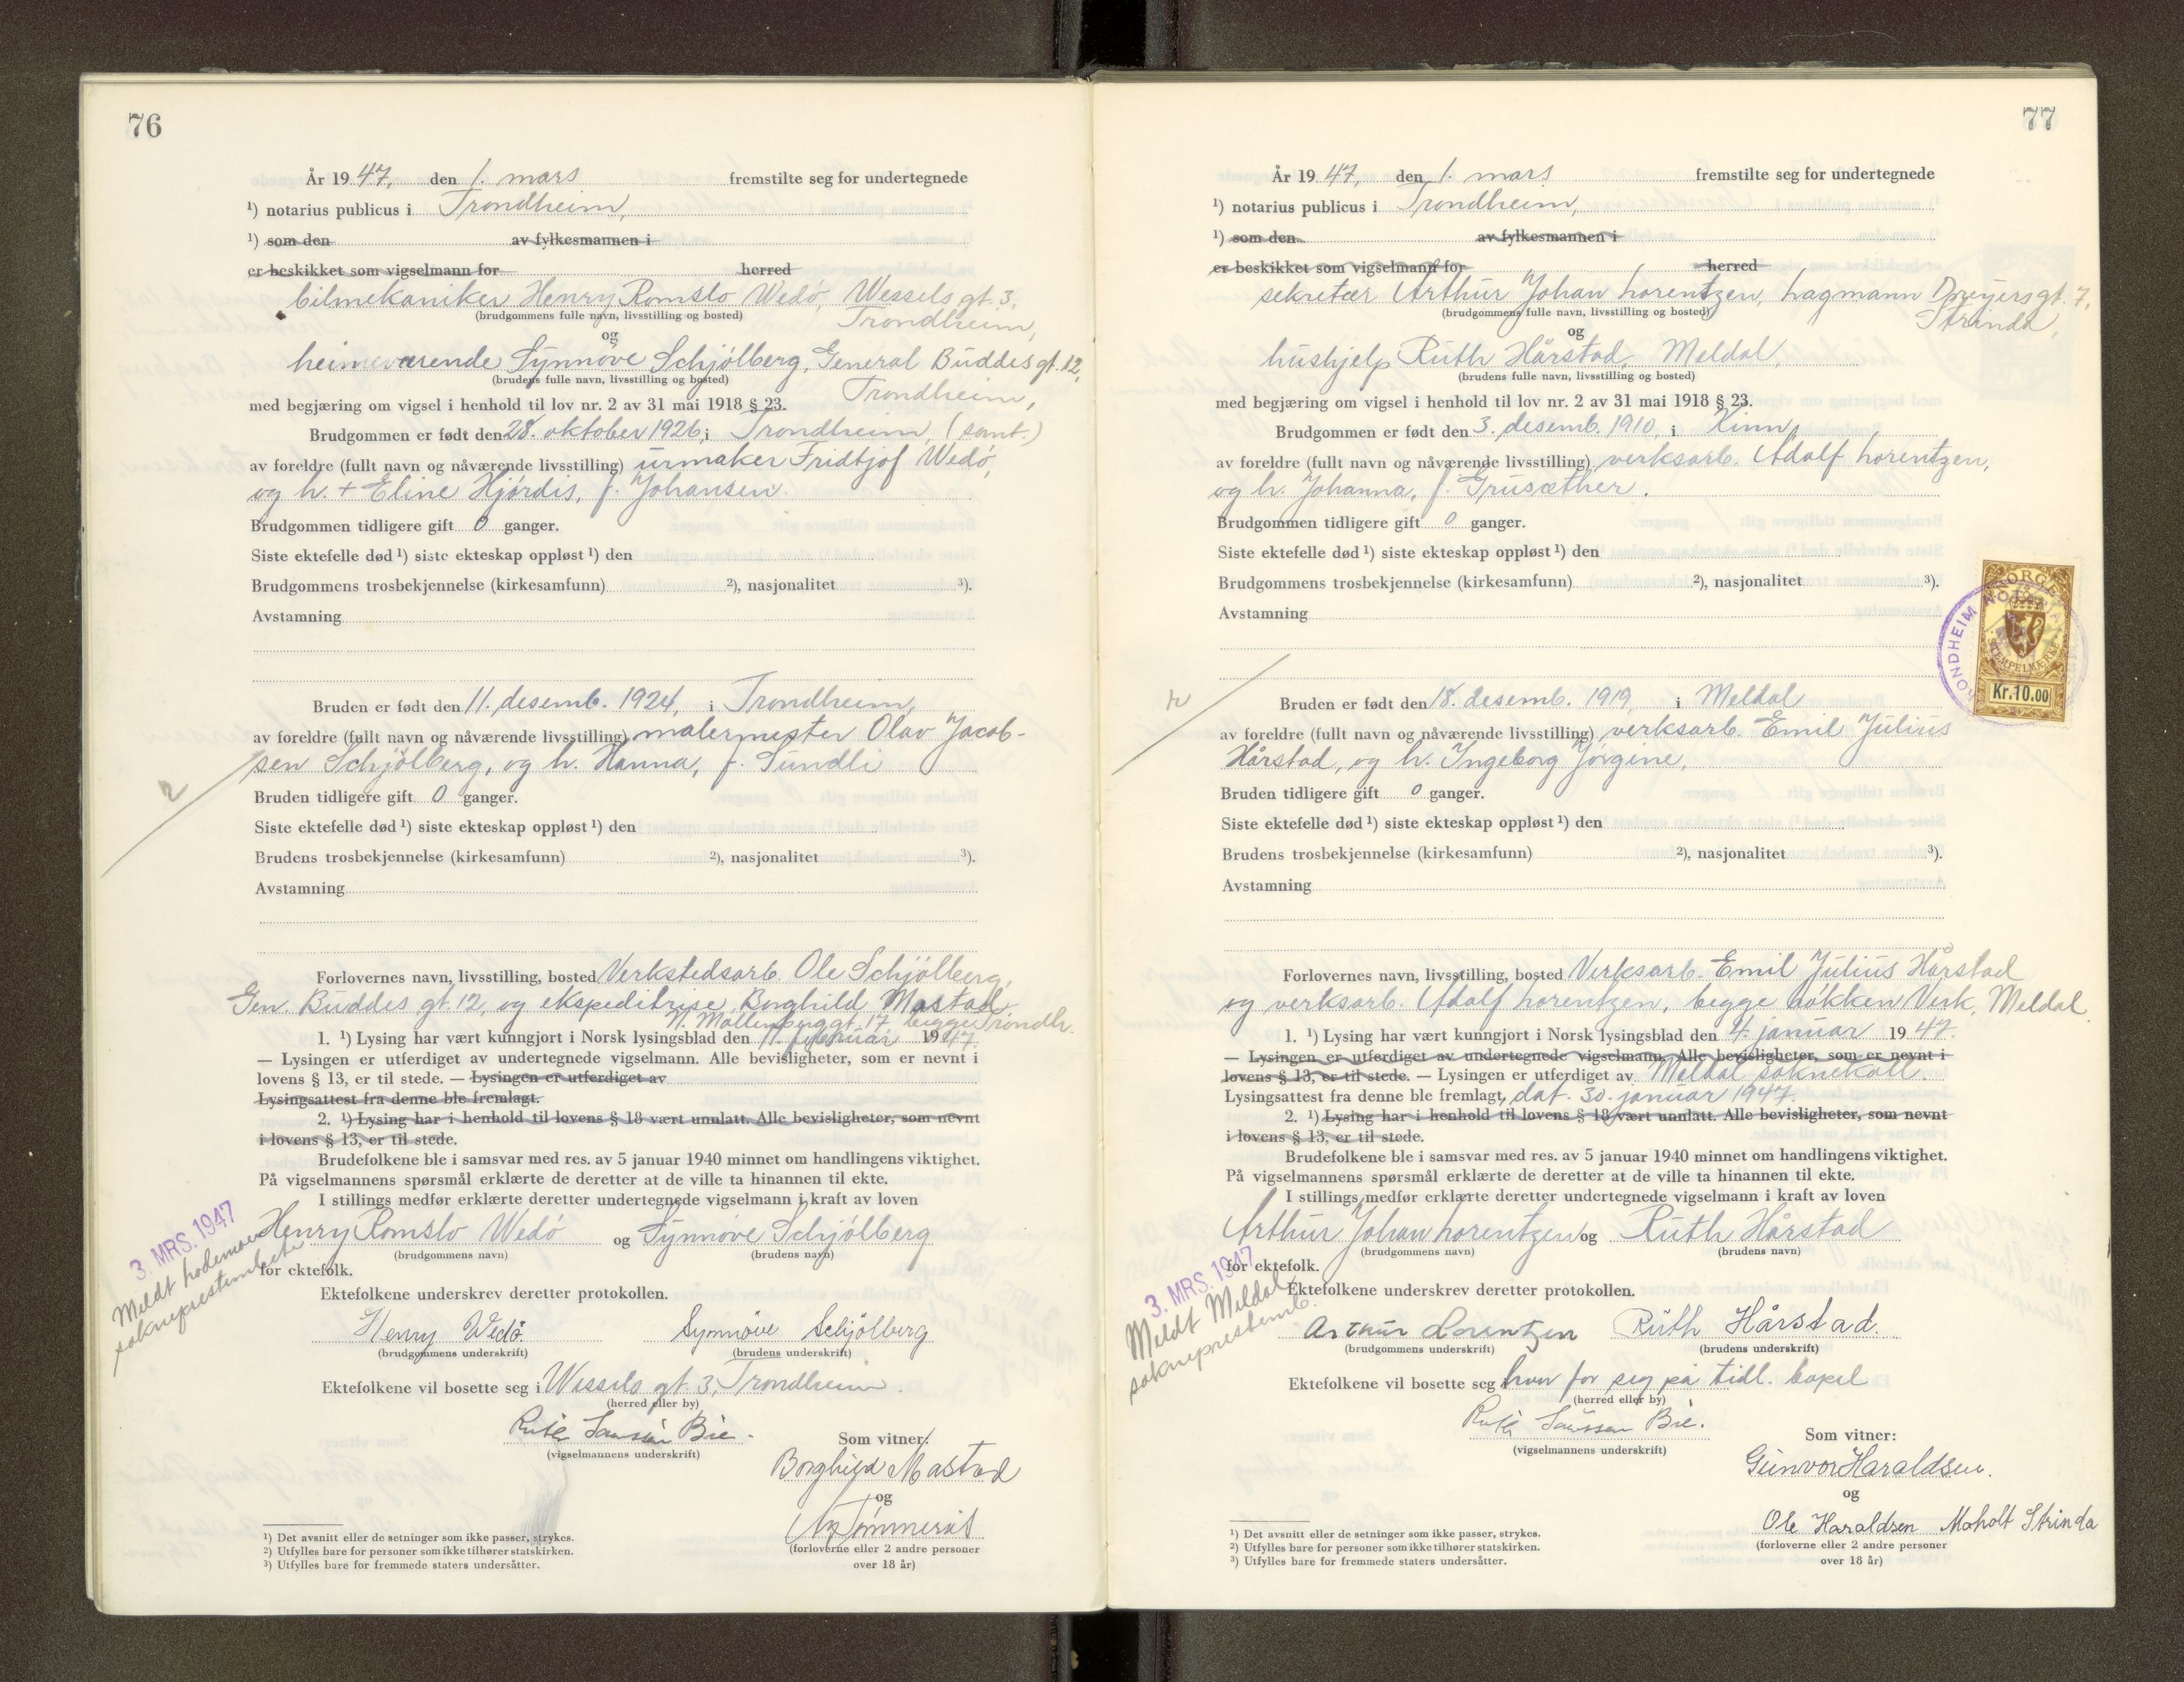 76
År 1947, den 1. mars fremstilte seg for undertegnede
¹) notarius publicus i Trondheim,
¹) som den av fylkesmannen i
er beskikket som vigselmann for herred
bilmekaniker Henry Romslo Wedø, Wessels gt. 3,
(brudgommens fulle navn, livsstilling og bosted) Trondheim,
og
heimeværende Synnøve Schjølberg, General Buddes gt. 12,
(brudens fulle navn, livsstilling og bosted)
med begjæring om vigsel i henhold til lov nr. 2 av 31 mai 1918 § 23. Trondheim,
Brudgommen er født den 28. oktober 1926, i Trondheim, (samt.)
av foreldre (fullt navn og nåværende livsstilling) urmaker Fridtjof Wedø,
og h. + Eline Hjørdis, f. Johansen.
Brudgommen tidligere gift 0 ganger.
Siste ektefelle død ¹) siste ekteskap oppløst ¹) den
Brudgommens trosbekjennelse (kirkesamfunn) ²), nasjonalitet ³).
Avstamning
Bruden er født den 11. desemb. 1924, i Trondheim,
av foreldre (fullt navn og nåværende livsstilling) malermester Olav Jacob-
sen Schjølberg, og h. Hanna, f. Sundli
2
Bruden tidligere gift 0 ganger.
Siste ektefelle død ¹) siste ekteskap oppløst ¹) den
Brudens trosbekjennelse (kirkesamfunn) ²), nasjonalitet ³).
Avstamning
Forlovernes navn, livsstilling, bosted Verkstedsarb. Ole Schjølberg,
Gen. Buddes gt. 12, og ekspeditrise Borghild Mastad,
N. Møllenberggt. 17, begge Trondh.
1. ¹) Lysing har vært kunngjort i Norsk lysingsblad den 11. februar 1947.
— Lysingen er utferdiget av undertegnede vigselmann. Alle bevisligheter, som er nevnt i
lovens § 13, er til stede. — Lysingen er utferdiget av
Lysingsattest fra denne ble fremlagt.
2. ¹) Lysing har i henhold til lovens § 18 vært unnlatt. Alle bevisligheter, som nevnt
i lovens § 13, er til stede.
Brudefolkene ble i samsvar med res. av 5 januar 1940 minnet om handlingens viktighet.
På vigselmannens spørsmål erklærte de deretter at de ville ta hinannen til ekte.
I stillings medfør erklærte deretter undertegnede vigselmann i kraft av loven
Henry Romslo Wedø og Synnøve Schjølberg
(brudgommens navn) (brudens navn)
for ektefolk.
3. MRS. 1947
Meldt
sokneprestembete
Ektefolkene underskrev deretter protokollen.
Henry Wedø. Synnøve Schjølberg
(brudgommens underskrift) (brudens underskrift)
Ektefolkene vil bosette seg i Wessels gt. 3, Trondheim.
(herred eller by)
Bie.
(vigselmannens underskrift)
Som vitner:
Borghild Mastad
og
(forloverne eller 2 andre personer
over 18 år)
¹) Det avsnitt eller de setninger som ikke passer, strykes.
²) Utfylles bare for personer som ikke tilhører statskirken.
³) Utfylles bare for fremmede staters undersåtter.
77
År 1947, den 1. mars fremstilte seg for undertegnede
¹) notarius publicus i Trondheim,
¹) som den av fylkesmannen i
er beskikket som vigselmann for herred
sekretær Arthur Johan Lorentzen, Lagmann Dreyersgt. 7,
(brudgommens fulle navn, livsstilling og bosted) Strinda,
og
hushjelp Ruth Hårstad, Meldal,
(brudens fulle navn, livsstilling og bosted)
med begjæring om vigsel i henhold til lov nr. 2 av 31 mai 1918 § 23.
Brudgommen er født den 3. desemb. 1910, i Kinn,
av foreldre (fullt navn og nåværende livsstilling) verksarb. Adolf Lorentzen,
og h. Johanna, f. Grusæther.
Brudgommen tidligere gift 0 ganger.
Siste ektefelle død ¹) siste ekteskap oppløst ¹) den
Brudgommens trosbekjennelse (kirkesamfunn) ²), nasjonalitet ³).
Avstamning
NORGE
STEMPELMERKE
Kr. 10.00
TRONDHEIM
2
Bruden er født den 18. desemb. 1919, i Meldal
av foreldre (fullt navn og nåværende livsstilling) verksarb. Emil Julius
Hårstad, og h. Ingeborg Jørgine,
Bruden tidligere gift 0 ganger.
Siste ektefelle død ¹) siste ekteskap oppløst ¹) den
Brudens trosbekjennelse (kirkesamfunn) ²), nasjonalitet ³).
Avstamning
Forlovernes navn, livsstilling, bosted Verksarb. Emil Julius Hårstad
og verksarb. Adolf Lorentzen, begge Løkken Verk, Meldal.
1. ¹) Lysing har vært kunngjort i Norsk lysingsblad den 4. januar 1947.
— Lysingen er utferdiget av undertegnede vigselmann. Alle bevisligheter, som er nevnt i
lovens § 13, er til stede. — Lysingen er utferdiget av Meldal soknekall.
Lysingsattest fra denne ble fremlagt, dat. 30. januar 1947.
2. ¹) Lysing har i henhold til lovens § 18 vært unnlatt. Alle bevisligheter, som nevnt
i lovens § 13, er til stede.
Brudefolkene ble i samsvar med res. av 5 januar 1940 minnet om handlingens viktighet.
På vigselmannens spørsmål erklærte de deretter at de ville ta hinannen til ekte.
I stillings medfør erklærte deretter undertegnede vigselmann i kraft av loven
Arthur Johan Lorentzen og Ruth Hårstad
(brudgommens navn) (brudens navn)
for ektefolk.
3. MRS. 1947
Meldt Meldal
sokneprestemb.
Ektefolkene underskrev deretter protokollen.
Arthur Lorentzen Ruth Hårstad.
(brudgommens underskrift) (brudens underskrift)
Ektefolkene vil bosette seg hver for seg på tidl. bopel
(herred eller by)
Bie.
(vigselmannens underskrift)
Som vitner:
Gunvor Haraldsen.
og
Ole Haraldsen Moholt Strinda
(forloverne eller 2 andre personer
over 18 år)
¹) Det avsnitt eller de setninger som ikke passer, strykes.
²) Utfylles bare for personer som ikke tilhører statskirken.
³) Utfylles bare for fremmede staters undersåtter.